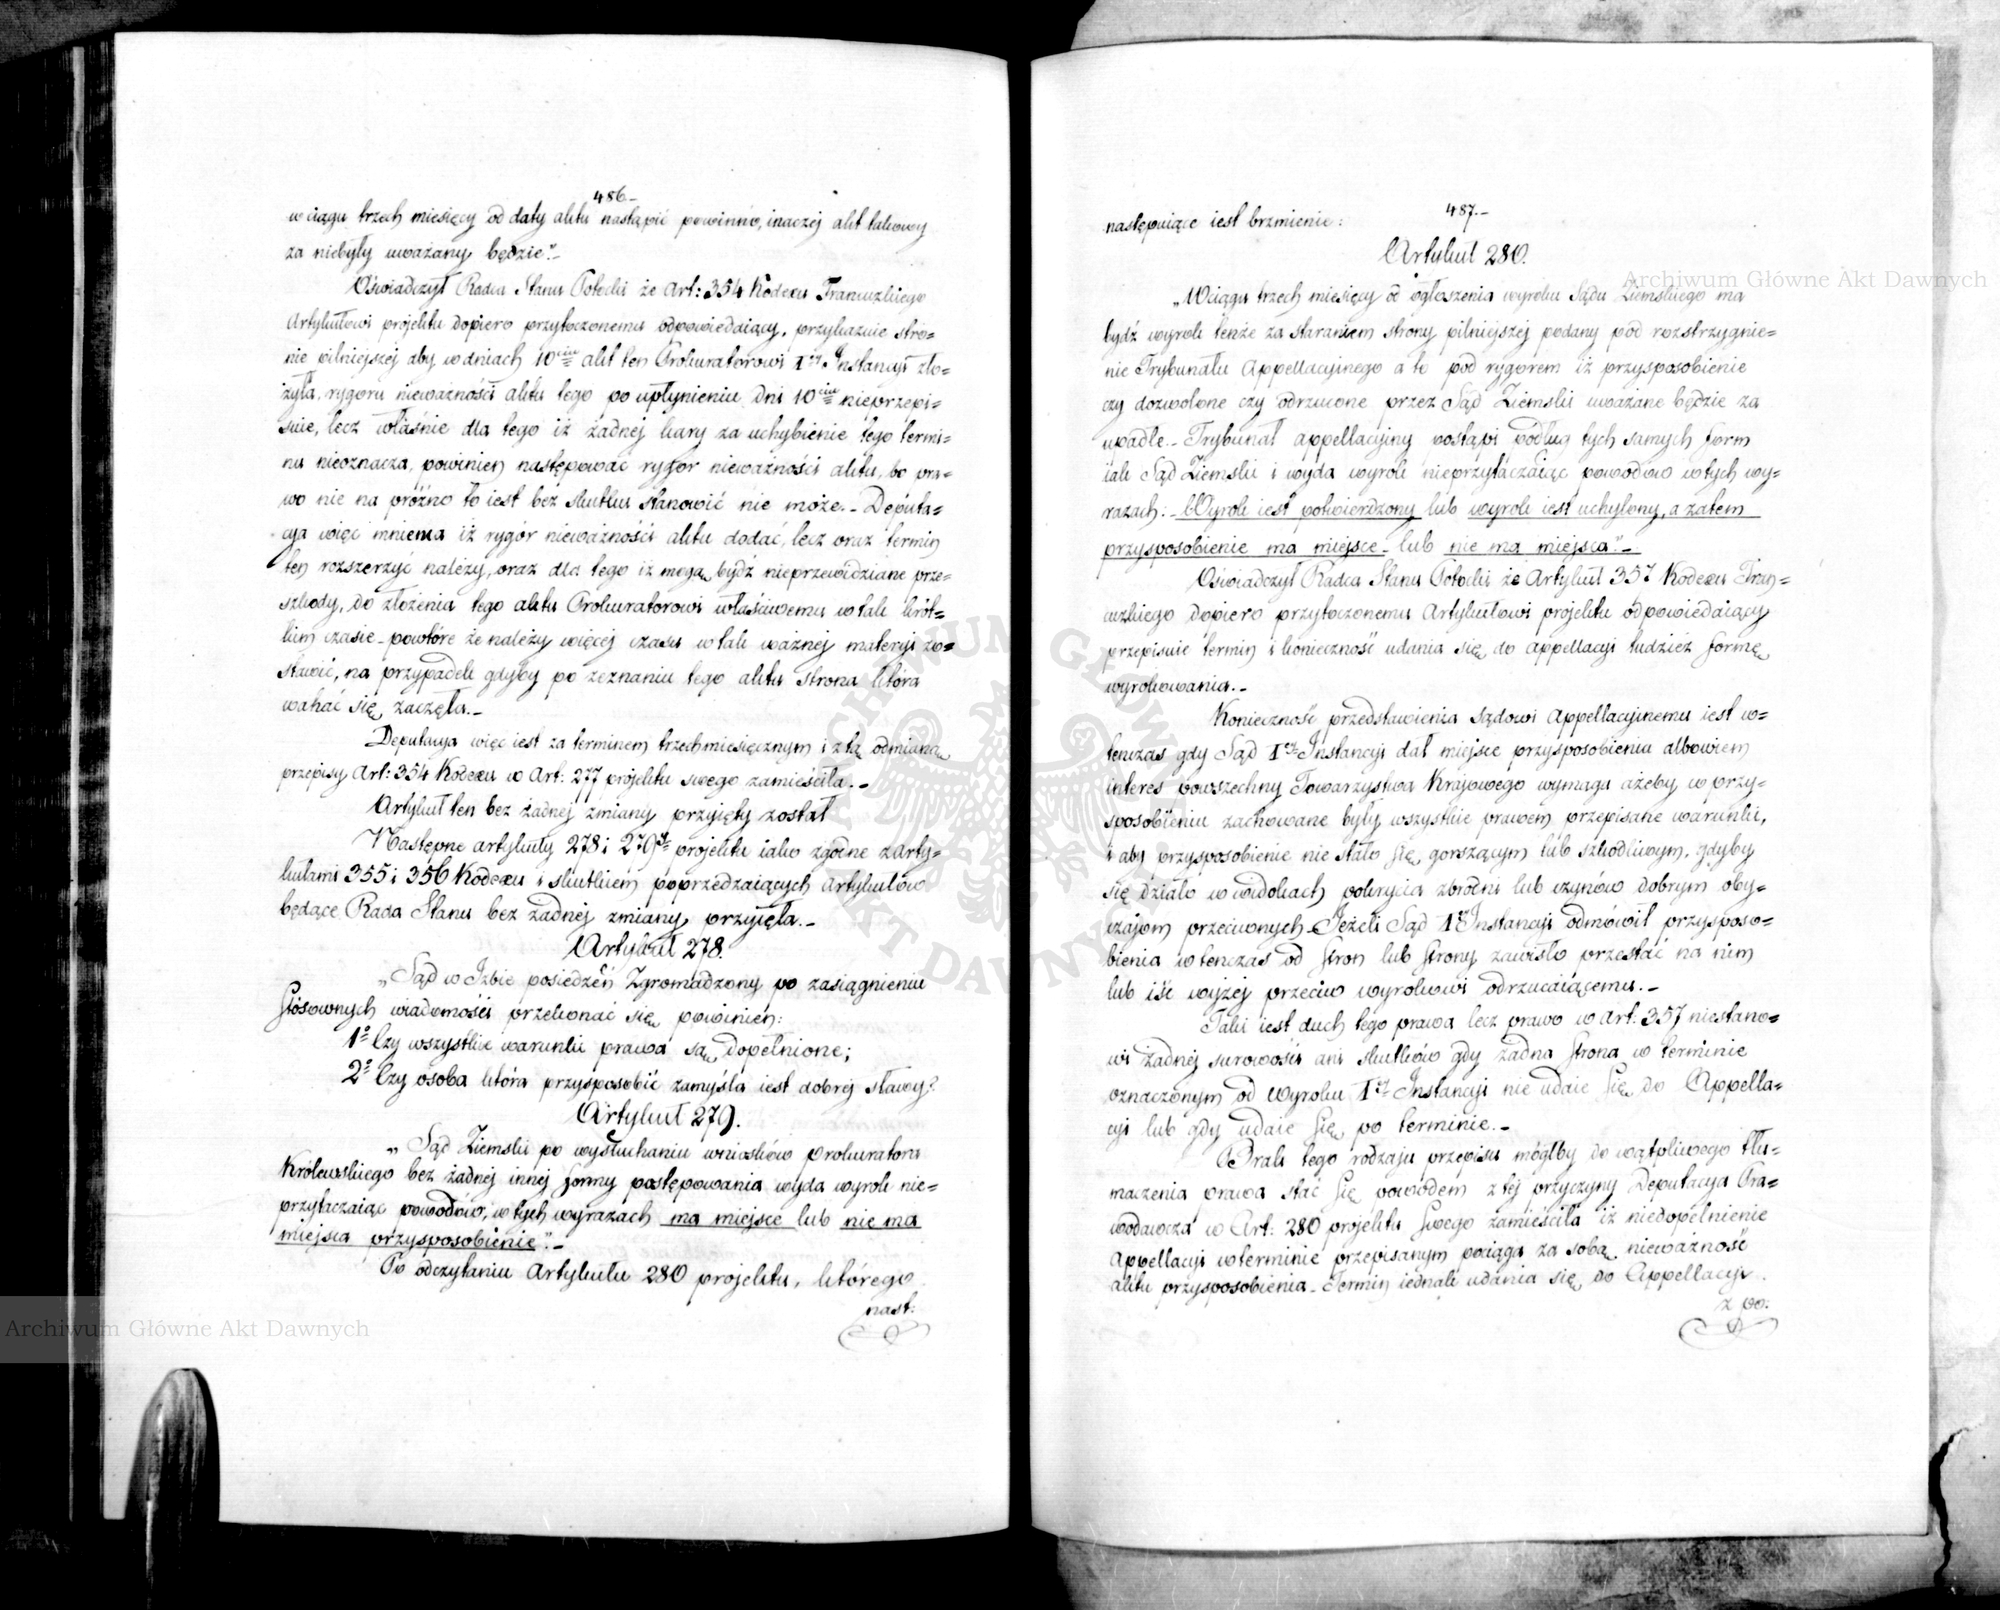 486.-
w ciągu trzech miesięcy od daty aktu nastąpić powinno, inaczej akt takowy
za niebyły uważany będzie".-
Oświadczył Radca Stanu Potocki że Art: 354 Kodexu Francuzkiego
Artykułowi projektu dopiero przytoczonemu odpowiedaiący, przykazuie stro=
nie pilniejszej aby w dniach 10ciu akt ten Prokuratorowi 1ej Instancyi zło=
żyła, rygoru nieważności aktu tego po upłynieniu dni 10ciu nieprzepi=
suie, lecz właśnie dla tego iż żadnej kary za uchybienie tego termi=
nu nieoznacza, powinien następować rygor nieważności aktu, bo pra=
wo nie na próżno to iest bez skutku stanowić nie może.- Deputa=
cya więc mniema iż rygór nieważności aktu dodać, lecz oraz termin
ten rozszerzyć należy, oraz dla tego iż mogą bydź nieprzewidziane prze=
szkody, do złożenia tego aktu Prokuratorowi właściwemu w tak krót=
kim czasie - powtóre że należy więcej czasu w tak ważnej materyi zo=
stawić, na przypadek gdyby po zeznaniu tego aktu strona która
wahać się zaczęła.-
Deputacya więc iest za terminem trzechmiesięcznym i z tą odmianą
przepisy Art: 354 Kodexu w Art: 277 projektu swego zamieściła.-
Artykuł ten bez żadnej zmiany przyięty został
Następne artykuły 278 i 279ty projektu iako zgodne z arty=
kułami 355 i 356 Kodexu i skutkiem poprzedzaiących Artykułów
będące Rada Stanu bez żadnej zmiany przyięła.-
Artykuł 278.
„Sąd w Izbie posiedzeń Zgromadzony po zasiągnieniu
stósownych wiadomości przekonać się powinien:
1o Czy wszystkie warunki prawa są dopełnione;
2o Czy osoba która przysposobić zamyśla iest dobrej sławy?
Artykuł 279.
„Sąd Ziemski po wysłuchaniu wniosków Prokuratora
Królewskiego bez żadnej innej formy postępowania wyda wyrok nie=
przytaczaiąc powodów, w tych wyrazach ma miejsce lub nie ma
miejsca przysposobienie".-
Po odczytaniu Artykułu 280 projektu, którego
nast:
487.-
następuiące iest brzmienie:
Artykuł 280.
„W ciągu trzech miesięcy od ogłoszenia wyroku Sądu Ziemskiego ma
bydź wyrok tenże za staraniem strony pilniejszej podany pod rozstrzygnie=
nie Trybunału Appellacyjnego a to pod rygorem iż przysposobienie
czy dozwolone czy odrzucone przez Sąd Ziemski uważane będzie za
upadłe.- Trybunał appellacyjny postąpi podług tych samych form
iak Sąd Ziemski i wyda wyrok nieprzytaczaiąc powodów w tych wy=
razach:- Wyrok iest potwierdzony lub wyrok iest uchylony, a zatem
przysposobienie ma miejsce - lub nie ma miejsca".-
Oświadczył Radca Stanu Potocki że Artykuł 357 Kodexu Fran=
cuzkiego dopiero przytoczonemu Artykułowi projektu odpowiedaiący
przepisuie termin i konieczność udania się do Appellacyi tudzież formę
wyrokowania.-
Konieczność przedstawienia Sądowi Appellacyjnemu iest w=
tenczas gdy Sąd 1ej Instancyi dał miejsce przysposobieniu albowiem
interes powszechny Towarzystwa Krajowego wymaga ażeby w przy=
sposobieniu zachowane były wszystkie prawem przepisane warunki,
i aby przysposobienie nie stało się gorszącym lub szkodliwym, gdyby
się działo w widokach pokrycia zbrodni lub czynów dobrym oby=
czajom przeciwnych - Jeżeli Sąd 1ej Instancyi odmówił przysposo=
bienia wtenczas od stron lub strony zawisło przestać na nim
lub iść wyżej przeciw wyrokowi odrzucaiącemu.-
Taki iest duch tego prawa lecz prawo w Art: 357 niestano=
wi żadnej surowości ani skutków gdy żadna strona w terminie
oznaczonym od Wyroku 1ej Instancyi nie udaie się do Appella=
cyi lub gdy udaie się po terminie.-
Brak tego rodzaju przepisu mógłby do wątpliwego tłu=
maczenia prawa stać się powodem z tej przyczyny Deputacya Pra=
wodawcza w Art: 280 projektu swego zamieściła iż niedopełnienie
Appellacyi w terminie przepisanym pociąga za sobą nieważność
aktu przysposobienia - Termin iednak udania się do Appellacyi
z po:
Archiwum Główne Akt Dawnych
Archiwum Główne Akt Dawnych
ARCHIWUM GŁÓWNE AKT DAWNYCH